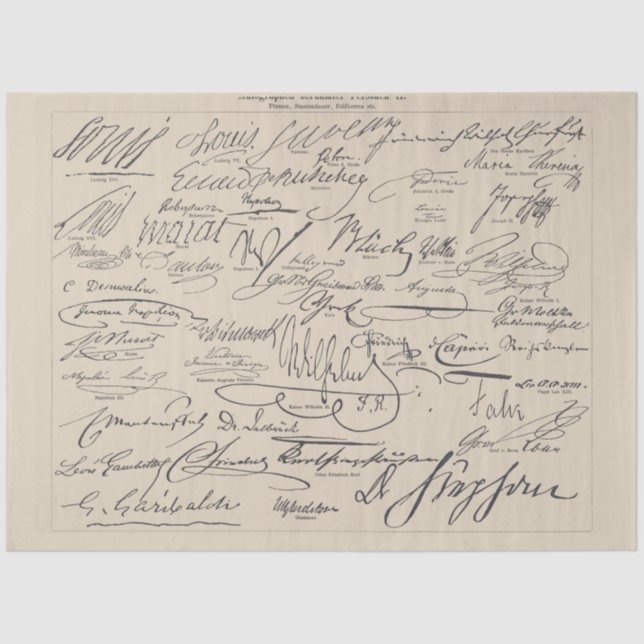 Autographen berühmter Personen II.
Fürsten, Staatsmänner, Feldherren etc.
Louis
Ludwig XIV.
Louis
Ludwig XV.
Der Große Kurfürst
Peter d. Große
Maria Theresia
Maria Theresia
Friedrich d. Große
Robespierre
Robespierre
Napoleon I.
Königin Luise
Joseph II.
Louis
Ludwig XVI.
Marat
Marat
Napoleon I.
Talleyrand
Talleyrand
Blücher
Blücher
Danton
Gneisenau
Augusta
Kaiser Wilhelm I.
C Desmoulins
York
Gr Moltke
Feldmarschall
v Bismarck
Friedrich
Kaiser Friedrich III.
v Caprivi Reichskanzler
J Murat
Murat
Kaiserin Auguste Victoria
Wilhelm
Kaiser Wilhelm II.
F. R.
Napoleon III.
Leo P.P. XIII.
Papst Leo XIII.
Falk
Manteuffel
Dr. Delbrück
Graf v. Roon
Léon Gambetta
Prinz Friedrich Karl
Dr Stephan
G. Garibaldi
WEGladstone
Gladstone